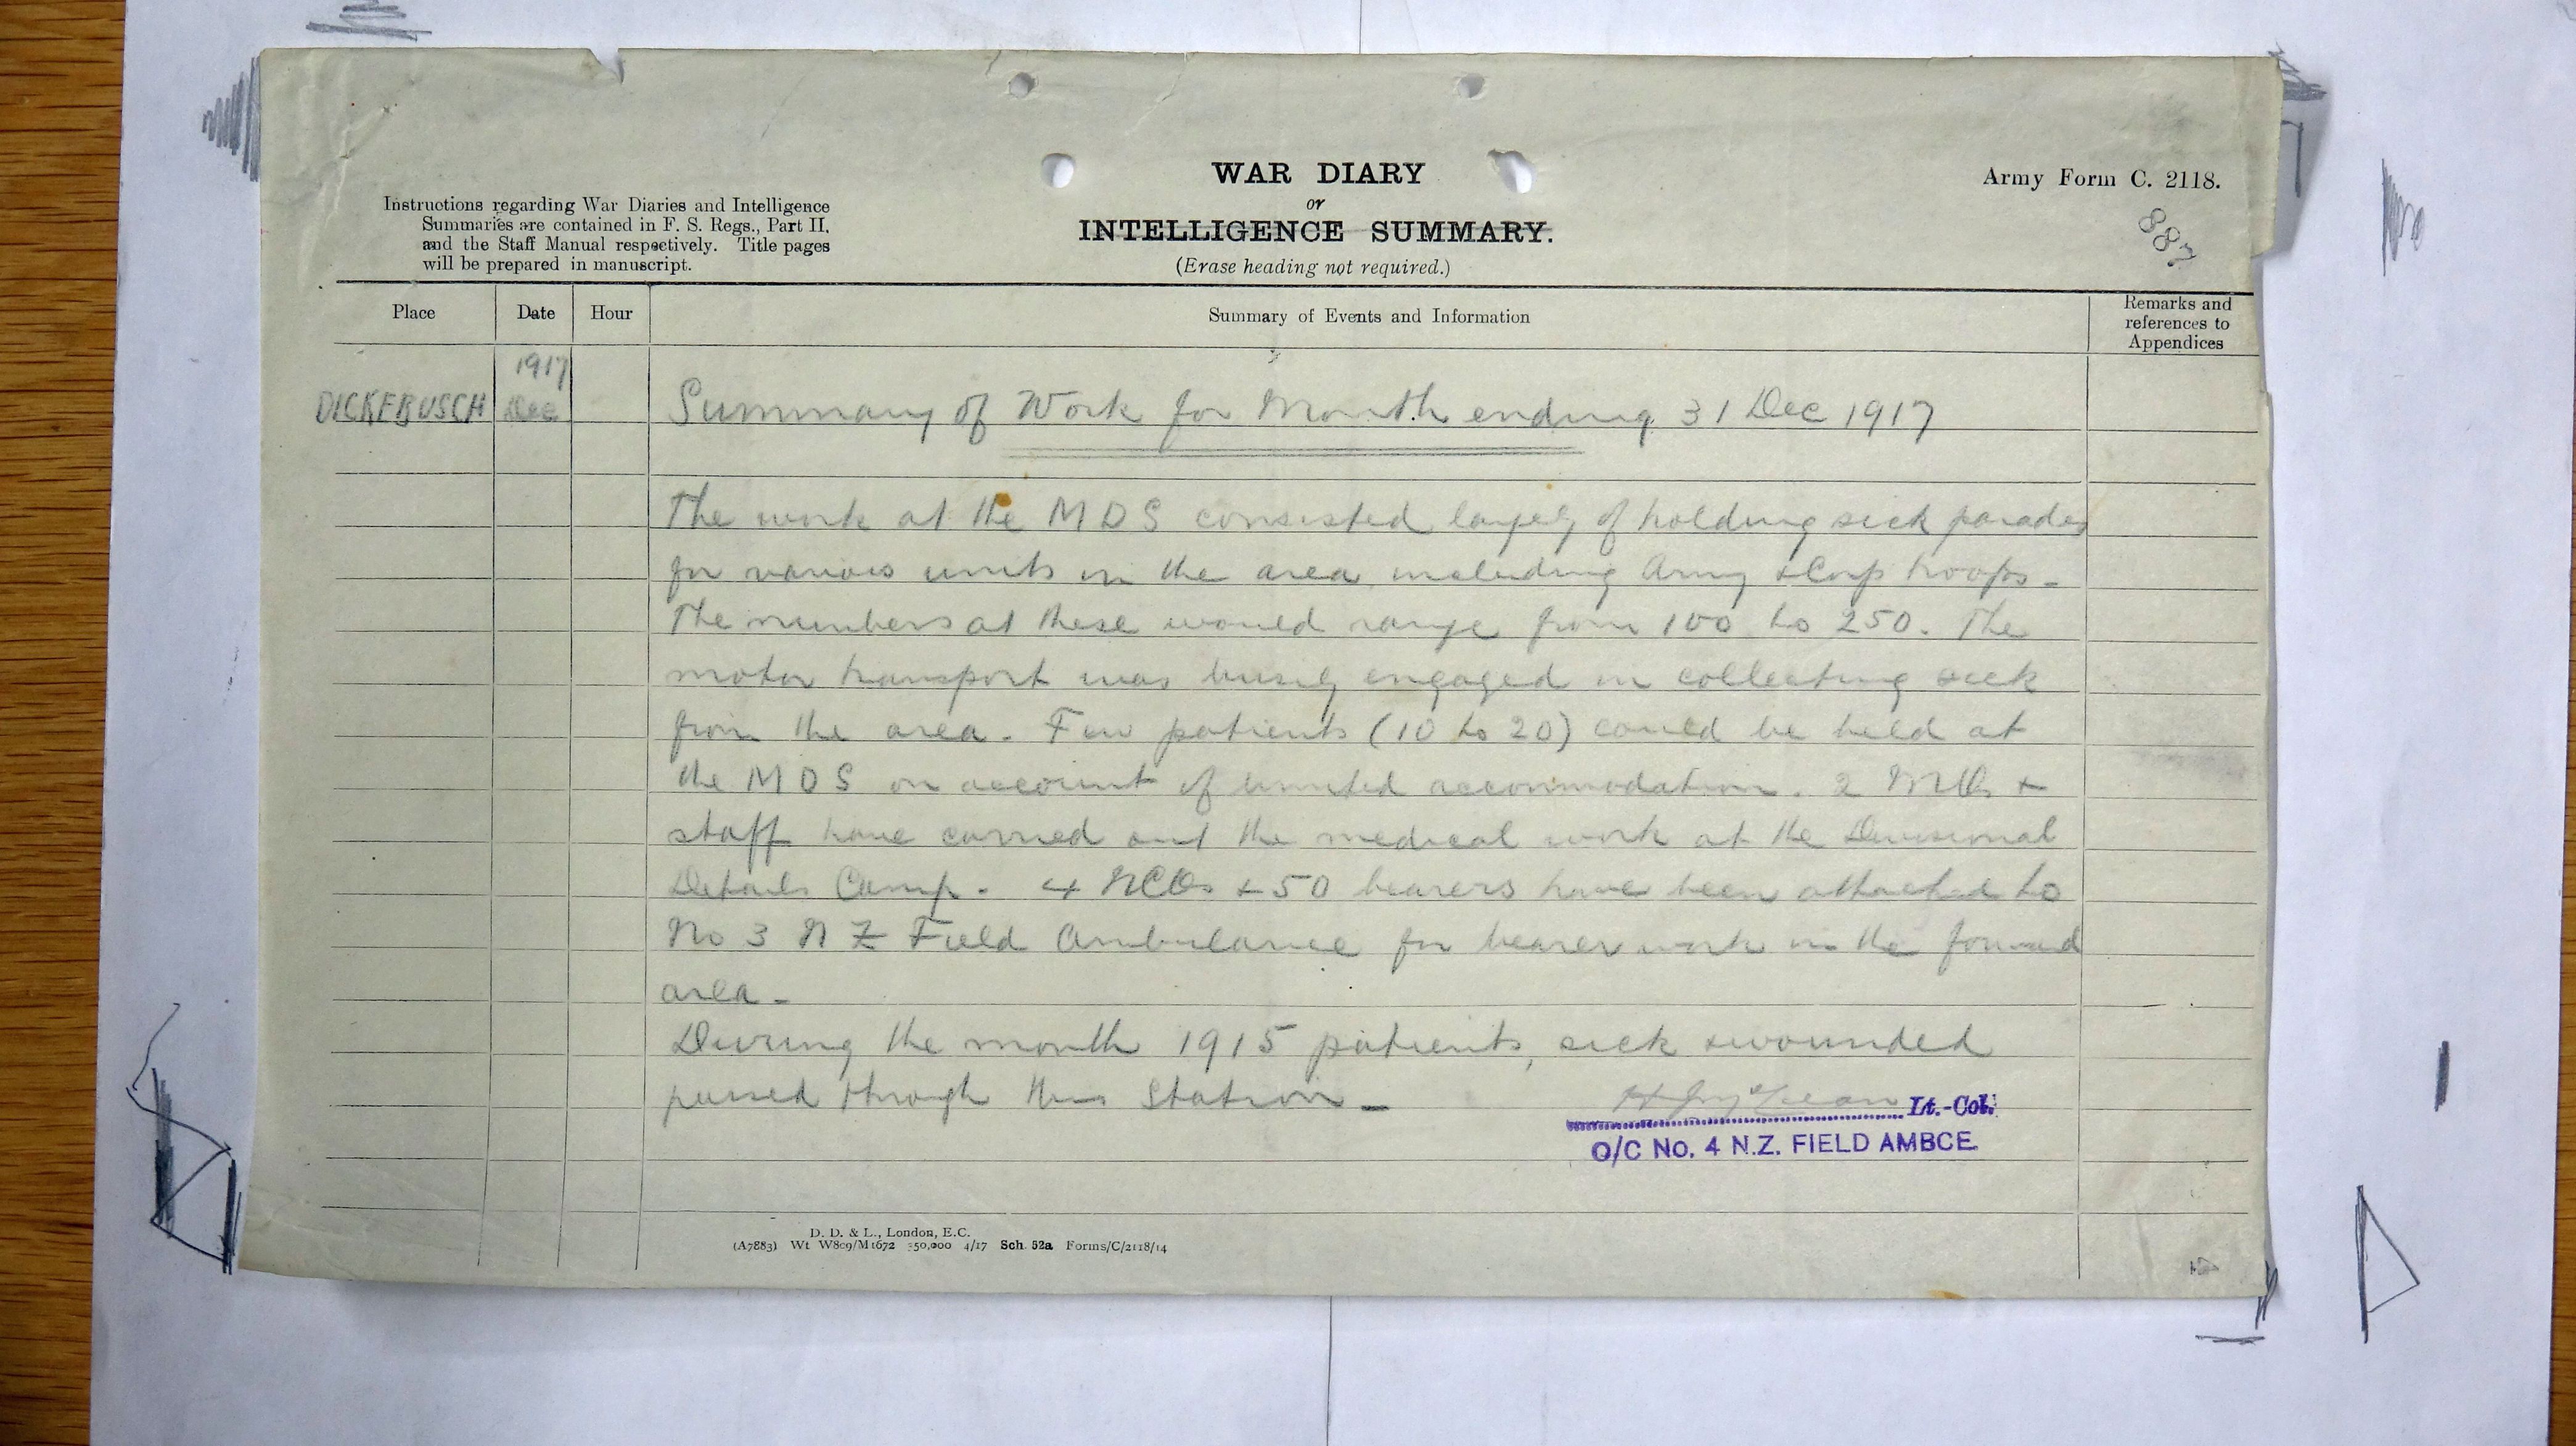 WAR DIARY
or
INTELLIGENCE SUMMARY.
(Erase heading not required.)
Army Form C. 2118.
887
Instructions regarding War Diaries and Intelligence
Summaries are contained in F. S. Regs., Part II,
and the Staff Manual respectively. Title pages
will be prepared in manuscript.
Place
Date
Hour
Summary of Events and Information
Remarks and
references to
Appendices
1917
DICKEBUSCH Dec Summary of Work for Month ending 31 Dec 1917
The work at the MDS consisted largely of holding sick parades
for various units in the area including Army & Corps troops -
The numbers at these would range from 100 to 250. The
motor transport was busily engaged in collecting sick
from the area - Few patients (10 to 20) could be held at
the MDS on account of limited accommodation. 2 MOs +
staff have carried out the medical work at the Divisional
Details Camp - 4 NCOs & 50 bearers have been attached to
No 3 N Z Field Ambulance for bearer work in the forward
area -
During the month 1915 patients, sick & wounded
passed through this Station -
McLean Lt.-Col.
O/C No. 4 N.Z. FIELD AMBCE
D. D. & L., London, E.C.
(A7883) Wt W809/M1672 350,000 4/17 Sch. 52a Forms/C/2118/14